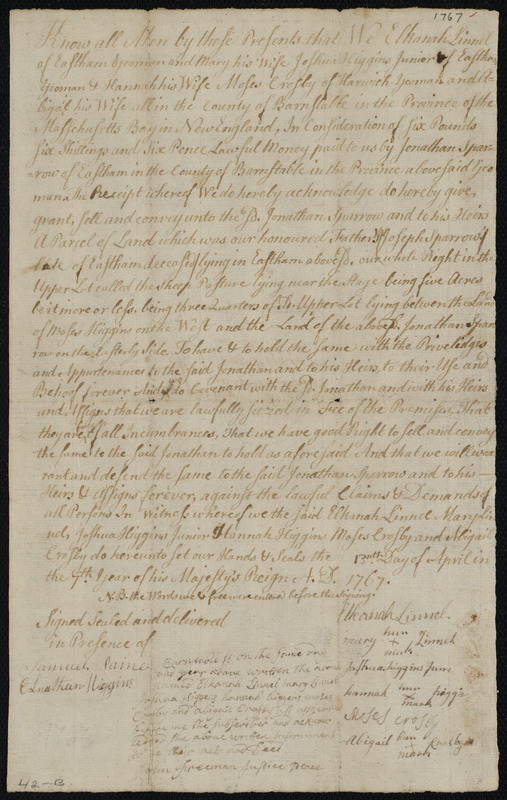 1767
Know all Men by these Presents that We Elkanah Linnel
of Eastham Yeoman and Mary his Wife Joshua Higgins Junior of Eastham
Yeoman & Hannah his Wife Moses Crosby of Harwich Yeoman and Ab-
bigal his Wife all in the County of Barnstable in the Province of the
Massachusetts Bay in New England, In Consideration of Six Pounds
Six Shillings and Six Pence Lawful Money paid to us by Jonathan Spar-
row of Eastham in the County of Barnstable in the Province abovesaid Yeo
man, The Receipt whereof We do hereby acknowledge do hereby give,
grant, sell and convey unto the sd. Jonathan Sparrow and to his Heirs
A Parcel of Land which was our honoured Father Joseph Sparrow's
late of Eastham deceased lying in Eastham abovesd. our whole Right in the
Upper Lot called the Sheep Pasture lying near the Stage being five Acres
be it more or less, being three Quarters of the Upper Lot lying between the Land
of Moses Higgins on the West and the Land of the abovesd. Jonathan Spar
row on the Easterly Side. To have & to hold the same with the Priviledges
and Appurtenances to the said Jonathan and to his Heirs, to their Use and
Behoof forever And do Covenant with the sd. Jonathan and with his Heirs
and Assigns that we are lawfully seized in Fee of the Premises, That
they are free of all Incumbrances, That we have good Right to sell and convey
the same to the said Jonathan to hold as aforesaid And that we will war
rant and defend the same to the said Jonathan Sparrow and to his
Heirs & Assigns forever, against the lawful Claims & Demands of
all Persons In Witness whereof we the said Elkanah Linnel Mary Lin
nel, Joshua Higgins Junior Hannah Higgins Moses Crosby and Abigail
Crosby do hereunto set our Hands & Seals the 13th Day of April in
the 7th Year of his Majesty's Reign A. D. 1767.
N.B. the Words we & free were entred before the signing.
Signed Sealed and delivered
in Presence of
Samuel Paine
Elnathan Higgins
Elkanah Linnel
mary her + mark Linnel
Joshua higgins Junr
hannah her + mark higgins
Moses crosby
Abigail her + mark Crosby
Barnstable ss on the same day
and year above written the above
named Elkanah Linnel mary Linnel
Joshua Higgens hannah Higgens moses
Crosby and abigail Crosby all appeared
before me the subscriber and acknow
ledged the above written instrument
to be their act and Deed
John Freeman Justice Peace
42-B